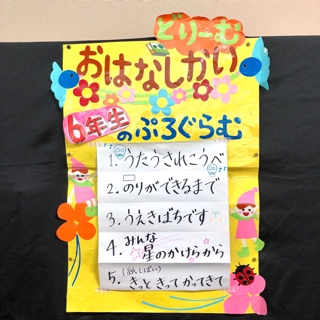 どりーむ
おはなしかい
6年生
のぷろぐらむ
1. うたうされこうべ
2. のりができるまで
3. うえきばちです
4. みんな
星のかけらから
5. (紙しばい)
きっと きって かってきて